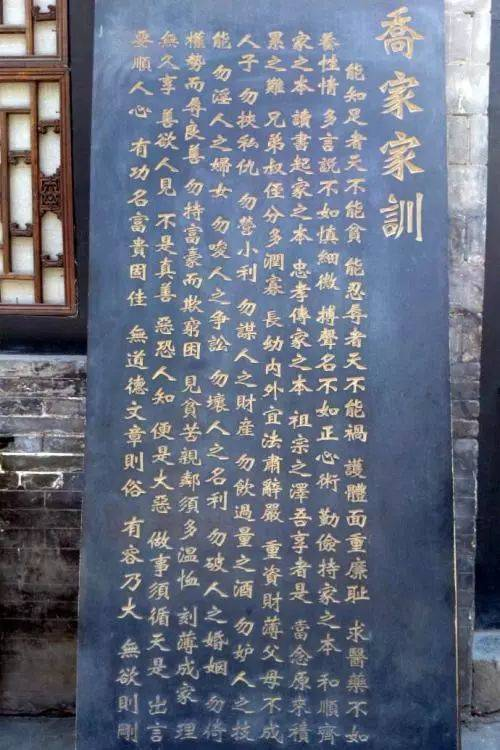 喬家家訓
能知足者天不能貧 能忍辱者天不能禍 護體面重廉恥 求醫藥不如
養性情 多言說不如慎細微 搏聲名不如正心術 勤儉持家之本 和順齊
家之本 讀書起家之本 忠孝傳家之本 祖宗之澤吾享者是 當念原來積
累之難 兄弟叔侄分多潤寡 長幼內外宜法肅辭嚴 重資財薄父母不成
人子 勿挾私仇 勿營小利 勿謀人之財產 勿飲過量之酒 勿妒人之技
能 勿淫人之婦女 勿唆人之爭訟 勿壞人之名利 勿破人之婚姻 勿倚
權勢而辱良善 勿持富豪而欺窮困 見貧苦親鄰須多溫恤 刻薄成家 理
無久享 善欲人見 不是真善 惡恐人知 便是大惡 做事須循天是 出言
要順人心 有功名富貴固佳 無道德文章則俗 有容乃大 無欲則剛